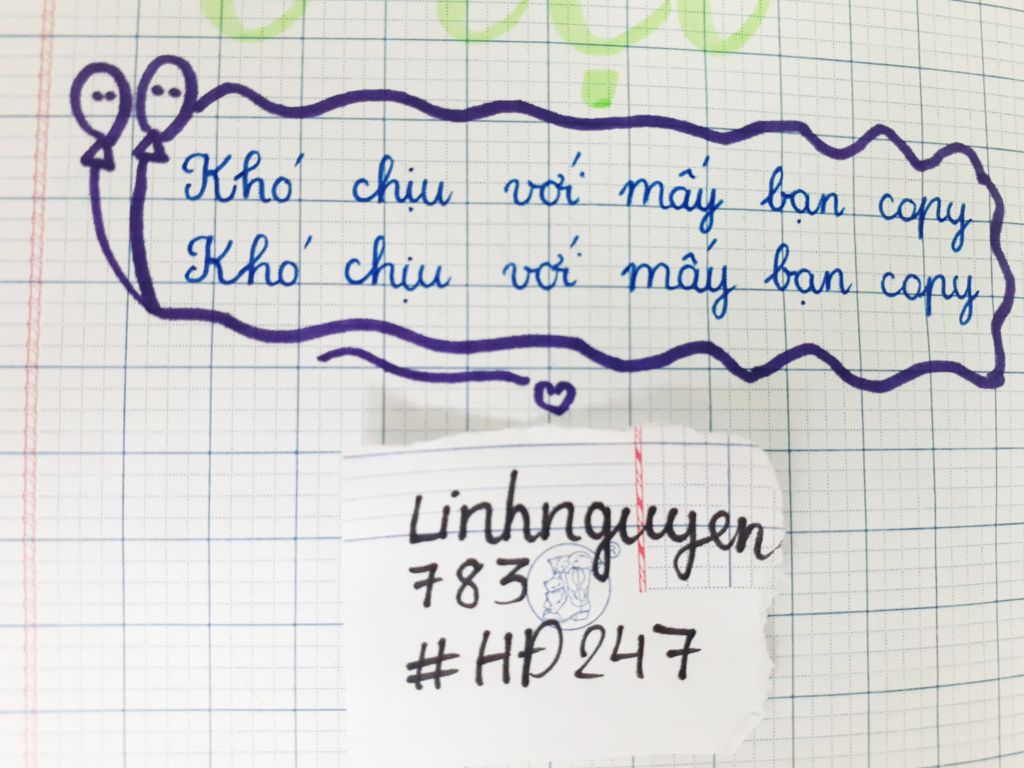 Khó chịu với mấy bạn copy
Khó chịu với mấy bạn copy
Linhnguyen
783
#HĐ247